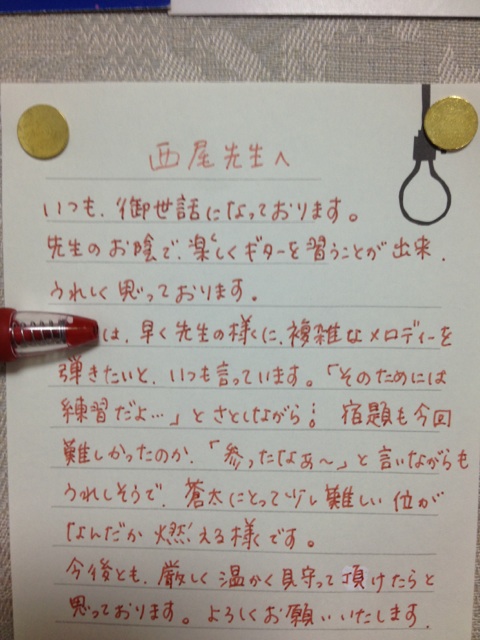 西尾先生へ
いつも、御世話になっております。
先生のお陰で、楽しくギターを習うことが出来、
うれしく思っております。
は、早く先生の様に、複雑なメロディーを
弾きたいと、いつも言っています。「そのためには
練習だよ…」とさとしながら! 宿題も今回
難しかったのか、「参ったなぁ〜」と言いながらも
うれしそうで、蒼太にとって少し難しい位が
なんだか燃える様です。
今後とも、厳しく温かく見守って頂けたらと
思っております。よろしくお願いいたします。